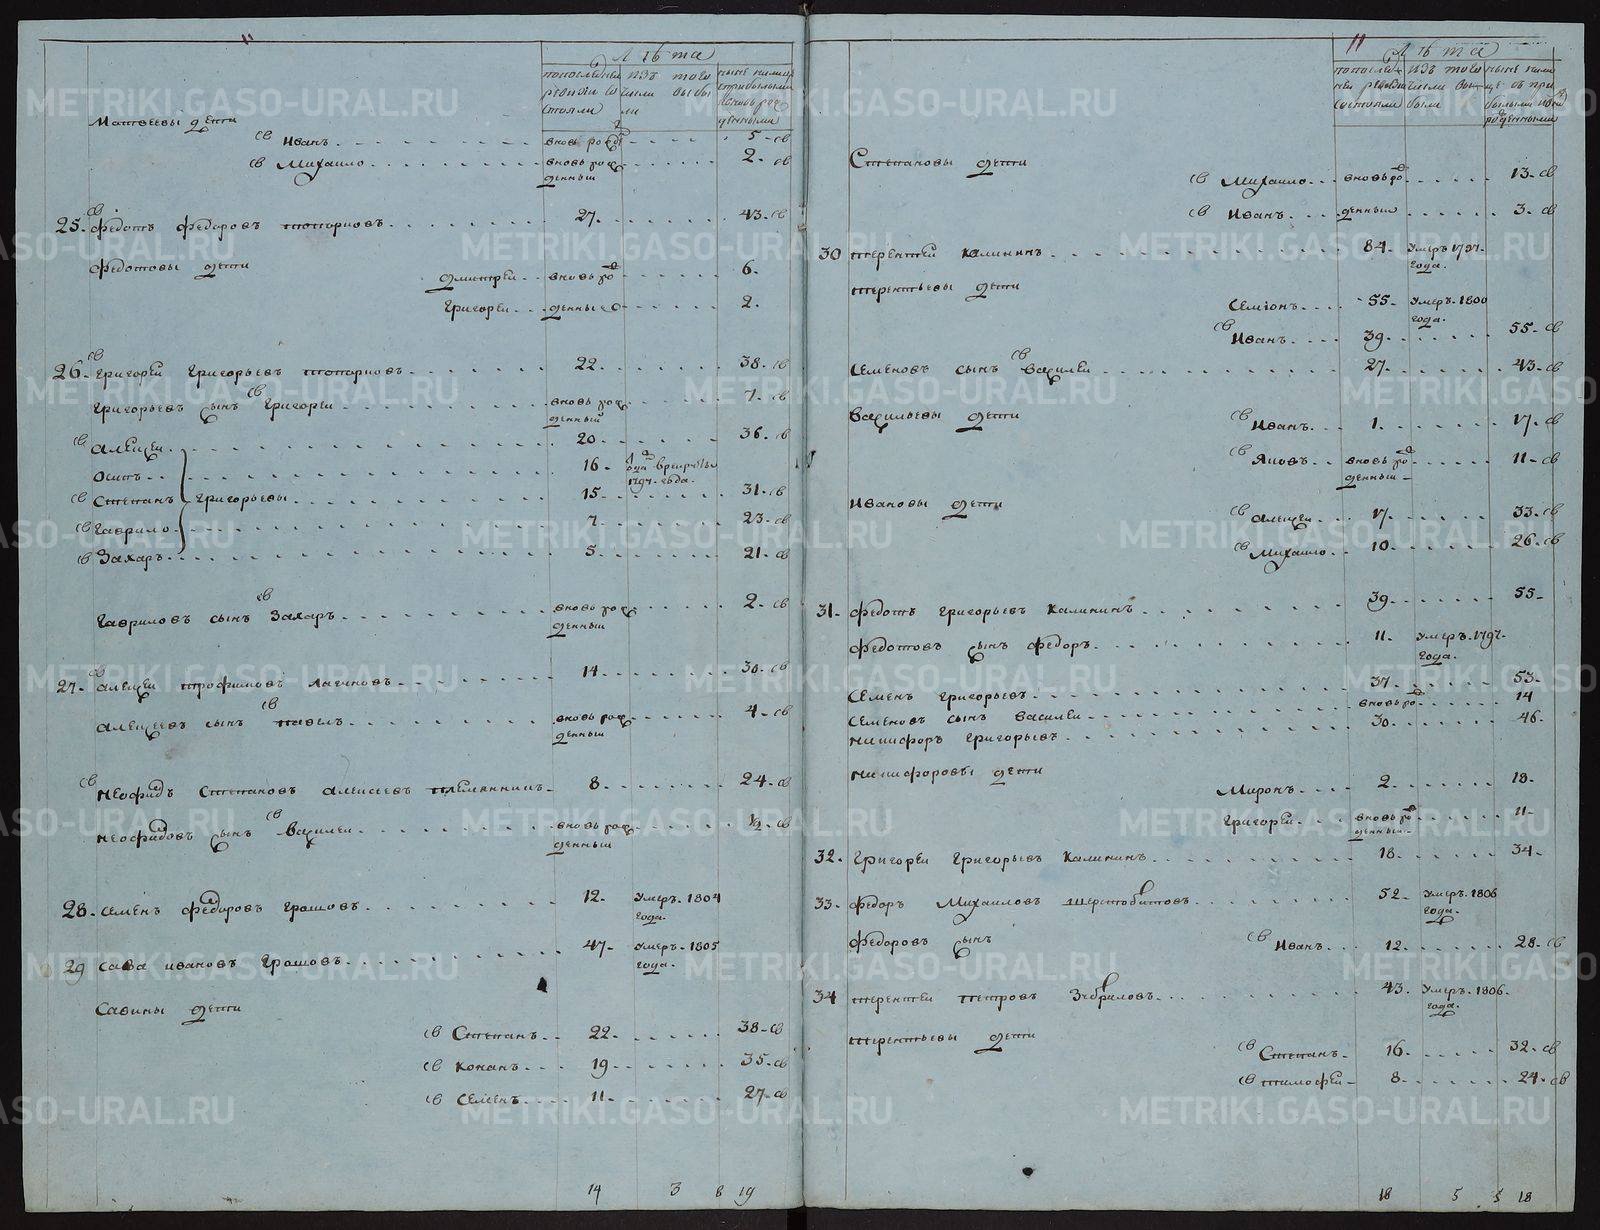 Лѣта
по последней ревизіи состояли
изъ того числа выбыли
ныне налицо с прибылыми и вновь рожденными
Матвеевы дети
св Иванъ вновь рожд 5 св
св Михаило вновь рож 2 св
денныи
25. св Федотъ Федоровъ Топорковъ 27 43 св
Федотовы дети
Дмитреи вновь ро 6
Григореи жденые 2
26. св Григореи Григорьевъ Топорковъ 22 38 св
Григорьевъ сынъ св Григореи вновь рож 7 св
денныи
св Алексеи 20 36 св
Осипъ 16 1797 года
св Степанъ Григорьевы 15 31 св
св Гаврило 7 23 св
св Захаръ 5 21 св
Гавриловъ сынъ св Захаръ вновь рож 2 св
денныи
27. св Алексеи Трофимовъ 14 30 св
Алексеевъ сынъ св Павелъ вновь рож 4 св
денныи
св Неофидъ Степановъ Алексеевъ племянникъ 8 24 св
Неофидовъ сынъ св Василеи вновь рож св
денныи
28. Семенъ Федоровъ Грошовъ 12 умеръ 1804
года
29 Сава Ивановъ Грошовъ 47 умеръ 1805
года
Савины дети
св Степанъ 22 38 св
св Конанъ 19 35 св
св Семенъ 11 27 св
14 3 8 19
11
Лѣта
по последней ревизіи состояли
изъ того числа выбыли
Степановы дети
св Михаило вновь ро 13 св
св Иванъ жденныи 3 св
30 Терентеи Калининъ 84 умеръ 1797
года
Терентьевы дети
Семіонъ 55 умеръ 1800
года
св Иванъ 39 55 св
Семеновъ сынъ св Василеи 27 43 св
Васильевы дети св Иванъ 1 17 св
св Яковъ вновь ро 11 св
жденныи
Ивановы дети св Алексеи 17 33 св
св Михаило 10 26 св
31. Федотъ Григорьевъ Калининъ 39 55
Федотовъ сынъ Федоръ 11 умеръ 1797
года
Семенъ Григорьевъ 37 53
Семеновъ сынъ Василеи вновь ро 14
Никифоръ Григорьевъ 30 46
Никифоровы дети
Миронъ 2 18
Григореи вновь ро 11
жденныи
32. Григореи Григорьевъ Калининъ 18 34
33. Федоръ Михаиловъ Шерстобитовъ 52 умеръ 1806
года
Федоровъ сынъ св Иванъ 12 28 св
34 Терентеи Петровъ 43 умеръ 1806
года
Терентьевы дети
св Степанъ 16 32 св
св Тимофеи 8 24 св
18 5 5 18
METRIKI.GASO-URAL.RU